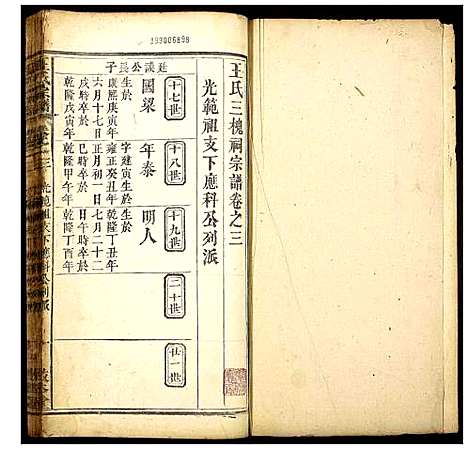 193006898
王氏三槐祠宗譜卷之三
光範祖支下應科公列派
十七世
十八世
十九世
二十世
廿一世
廷議公長子
國梁
生於
康熙庚寅年
六月十七日
辰時卒於
乾隆戊寅年
年泰
字建寅生於
雍正癸丑年
正月初一日
巳時卒於
乾隆甲午年
明人
生於
乾隆丁丑年
七月二十二
日時卒於
乾隆丁酉年
王氏宗譜
光範祖支下應科公列派